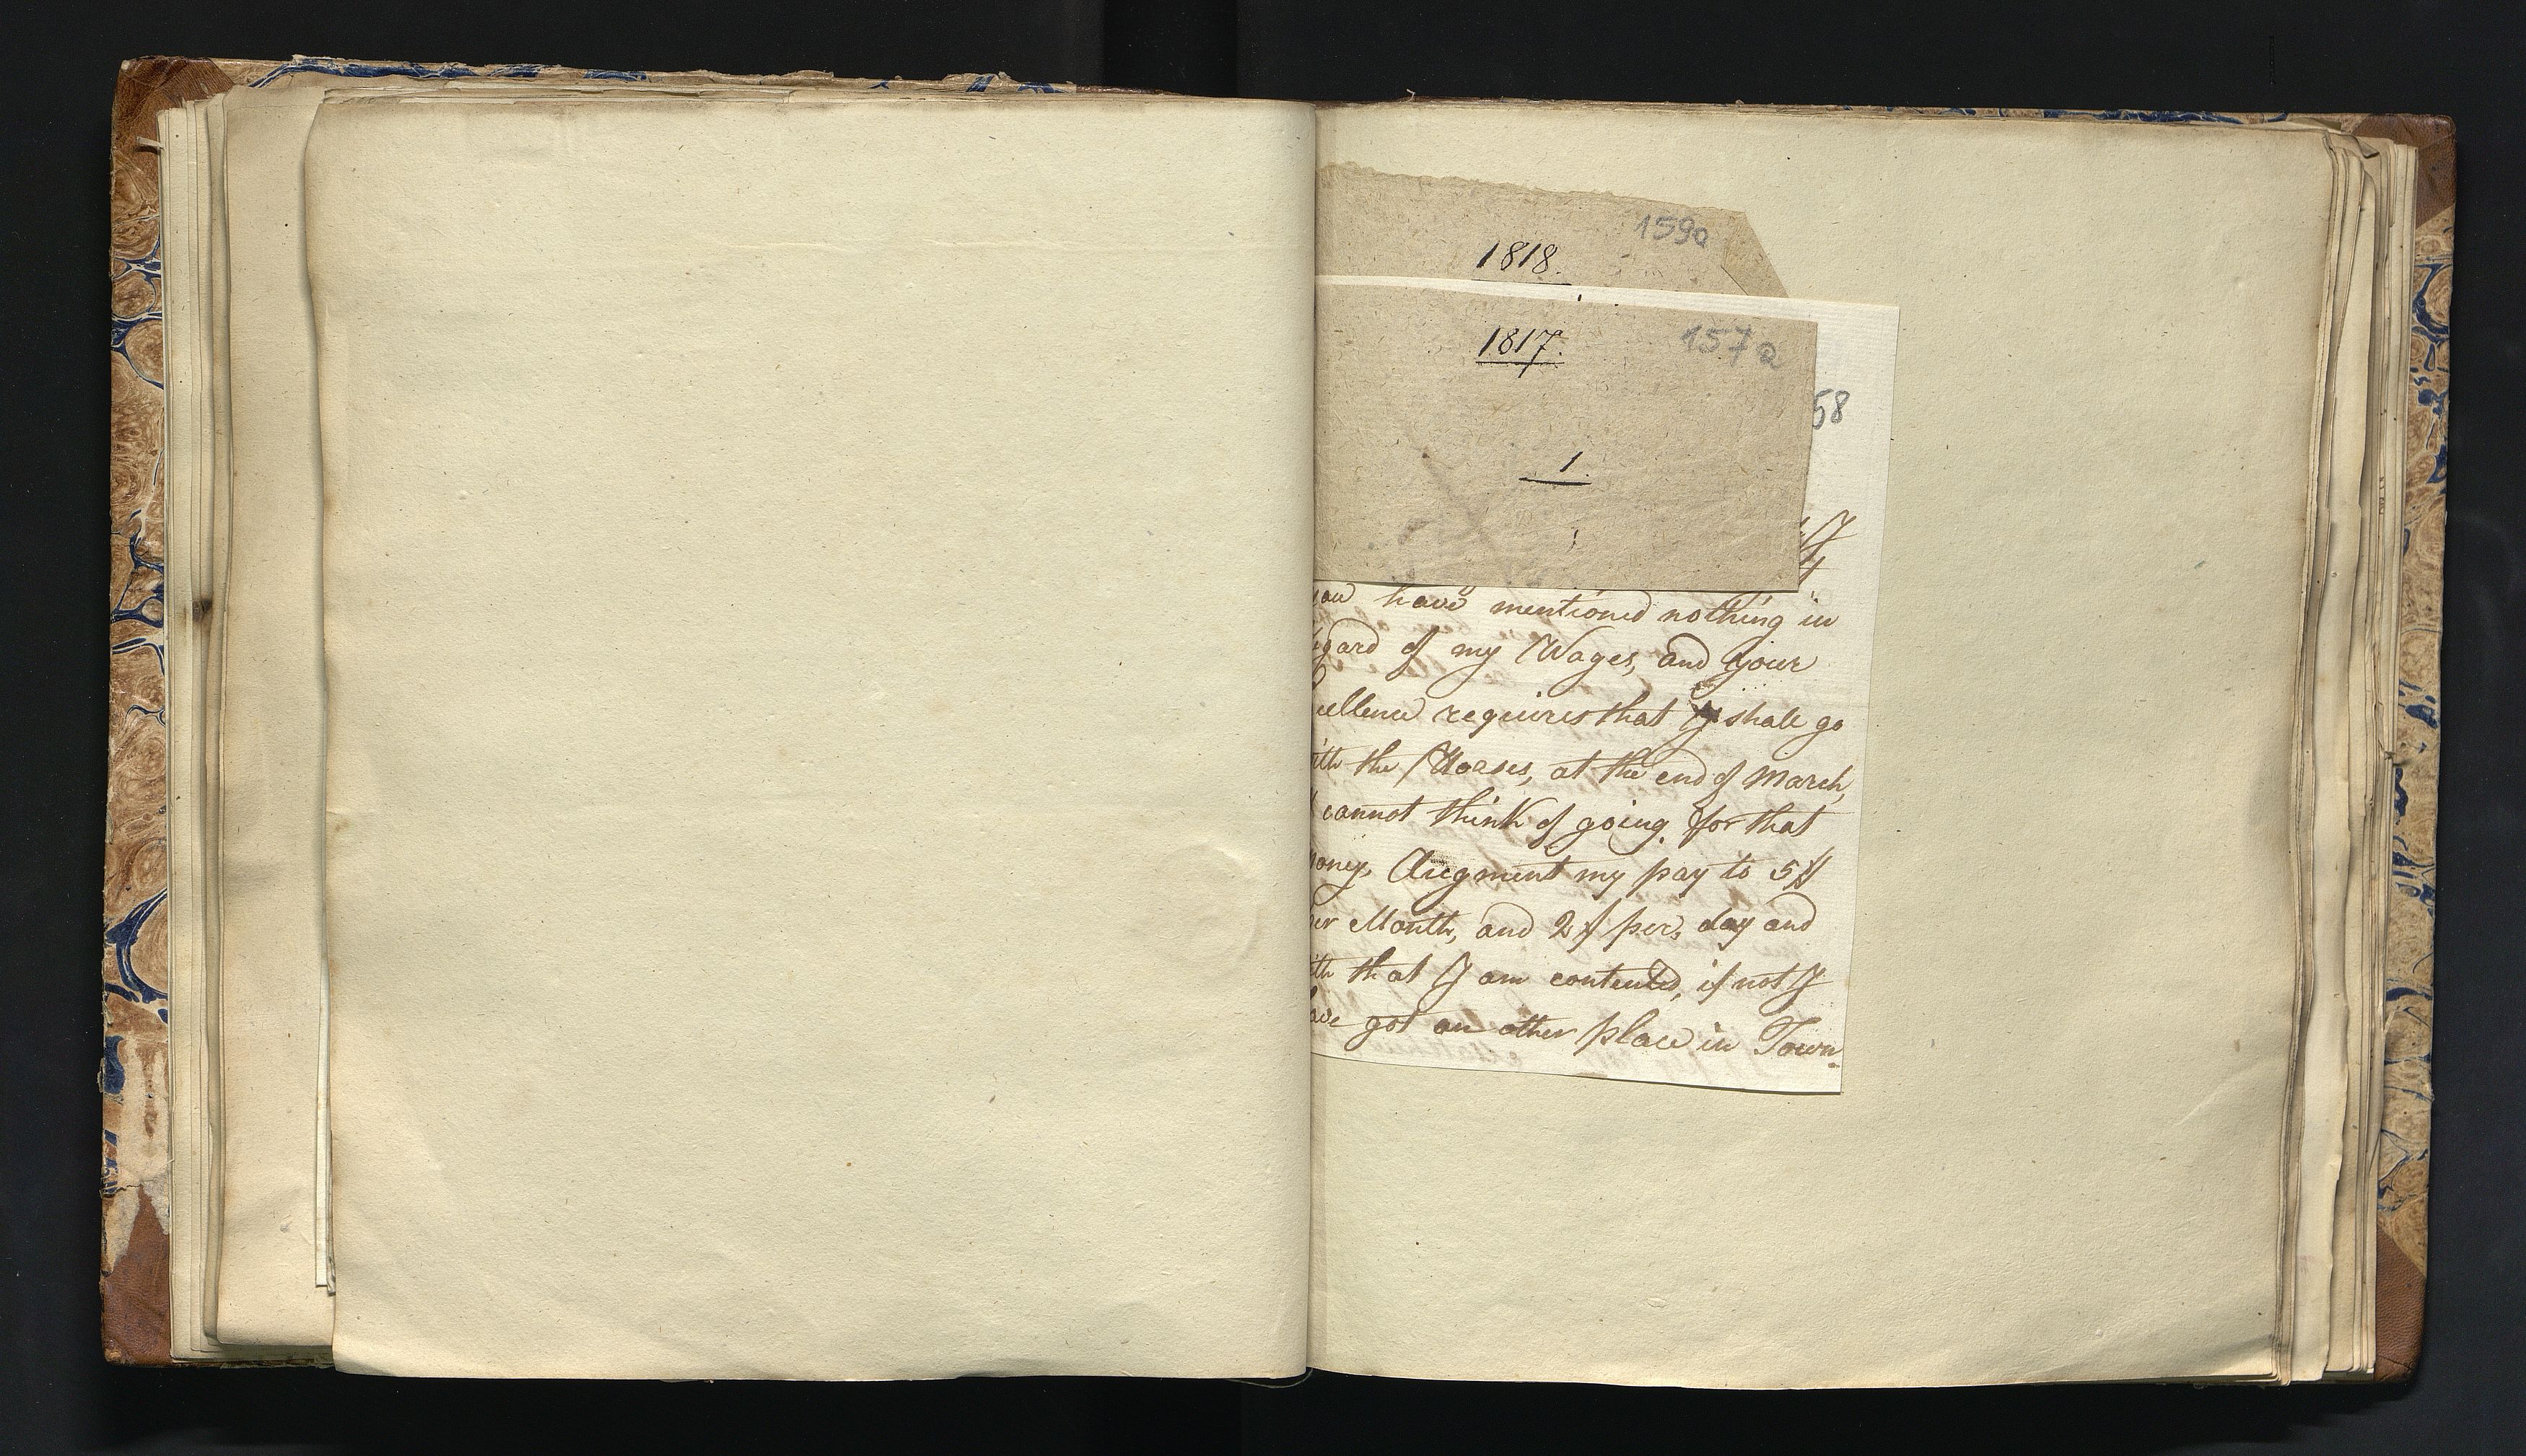 159a
1818.
1817.
157a
58
1.
J
you have mentioned nothing in
gard of my Wages, and your
cellence requires that J shall go
ith the Horses, at the end of March,
cannot think of going for that
oney. Augment my pay to 5 #
er Month, and 2 f per, day and
ith that J am contented, if not J
ave got an other place in Town